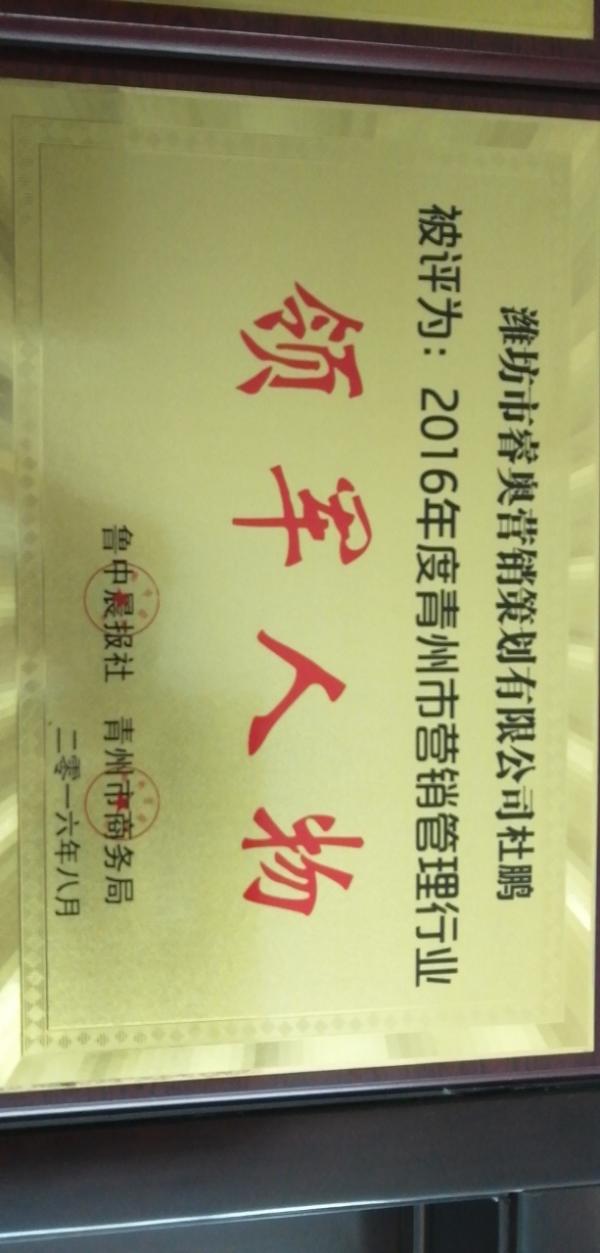 潍坊市睿奥营销策划有限公司杜鹏
被评为：2016年度青州市营销管理行业
领军人物
鲁中晨报社 青州市商务局
二零一六年八月